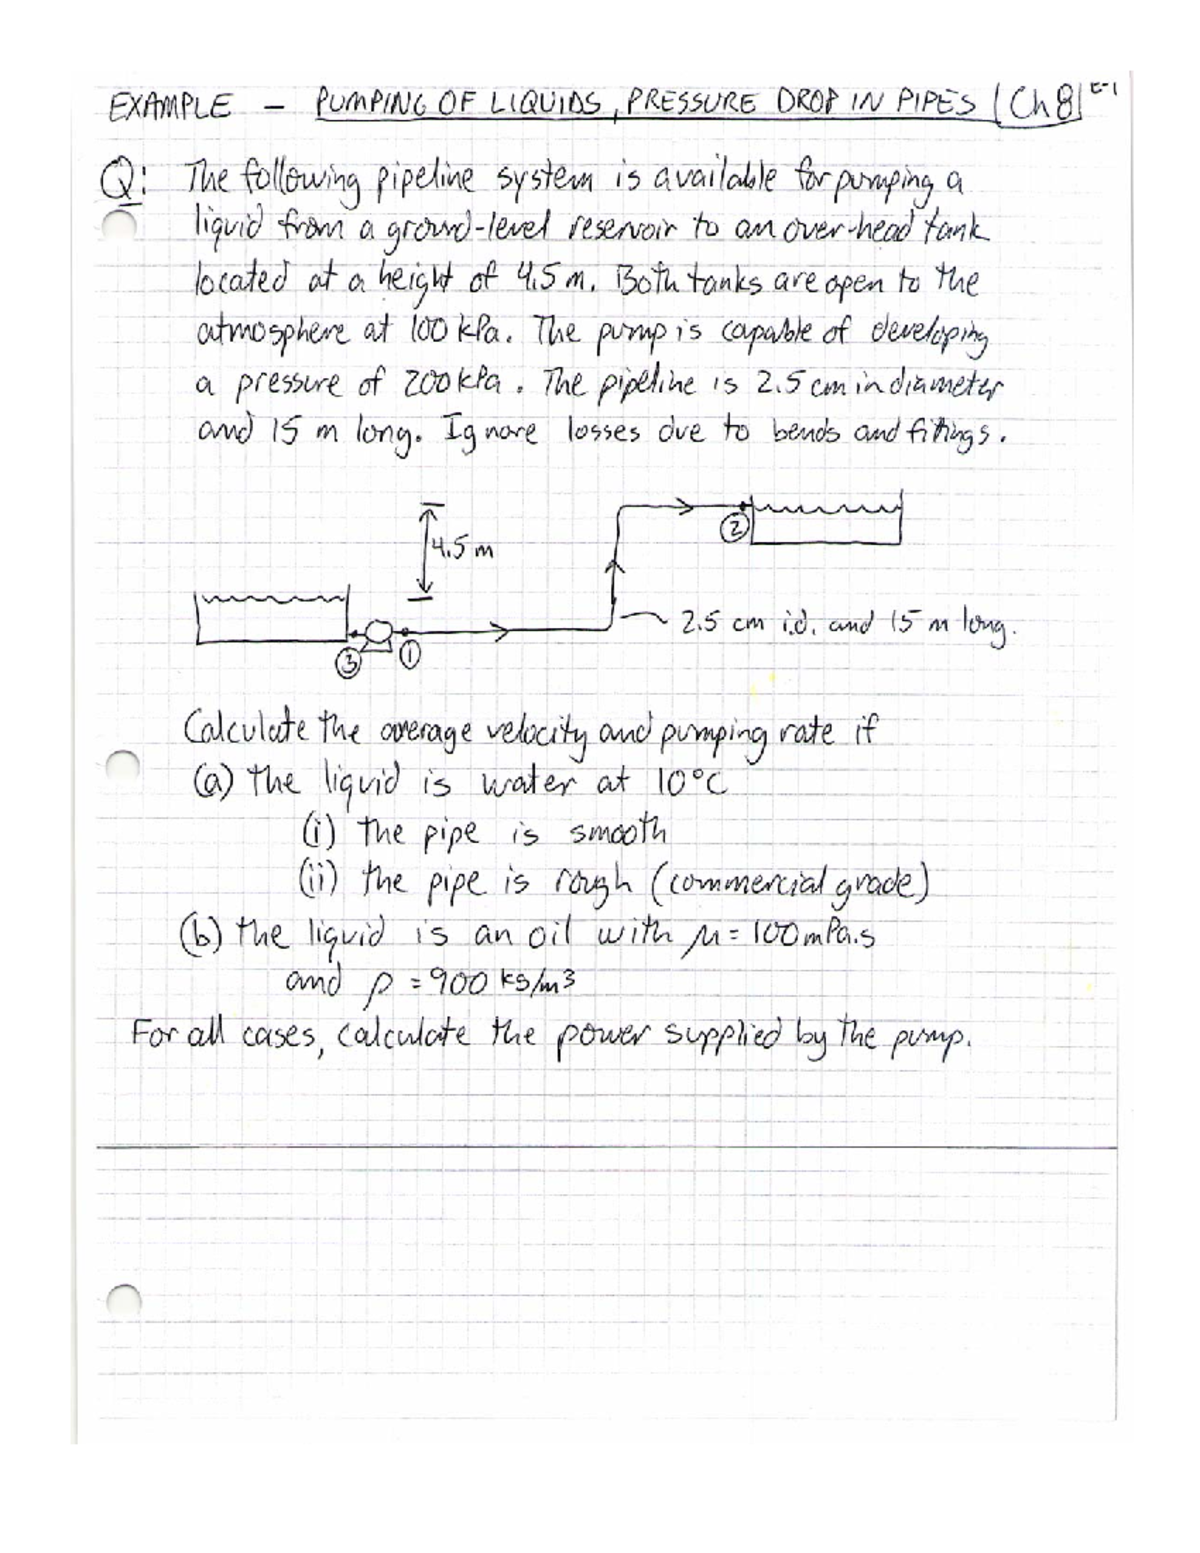 EXAMPLE – PUMPING OF LIQUIDS, PRESSURE DROP IN PIPES Ch 8 E-1
Q: The following pipeline system is available for pumping a
liquid from a ground-level reservoir to an over-head tank
located at a height of 4.5 m. Both tanks are open to the
atmosphere at 100 kPa. The pump is capable of developing
a pressure of 200 kPa. The pipeline is 2.5 cm in diameter
and 15 m long. Ignore losses due to bends and fittings.
4.5 m
2
2.5 cm i.d. and 15 m long.
3 1
Calculate the average velocity and pumping rate if
(a) the liquid is water at 10°C
(i) the pipe is smooth
(ii) the pipe is rough (commercial grade)
(b) the liquid is an oil with μ = 100 mPa.s
and ρ = 900 kg/m3
For all cases, calculate the power supplied by the pump.